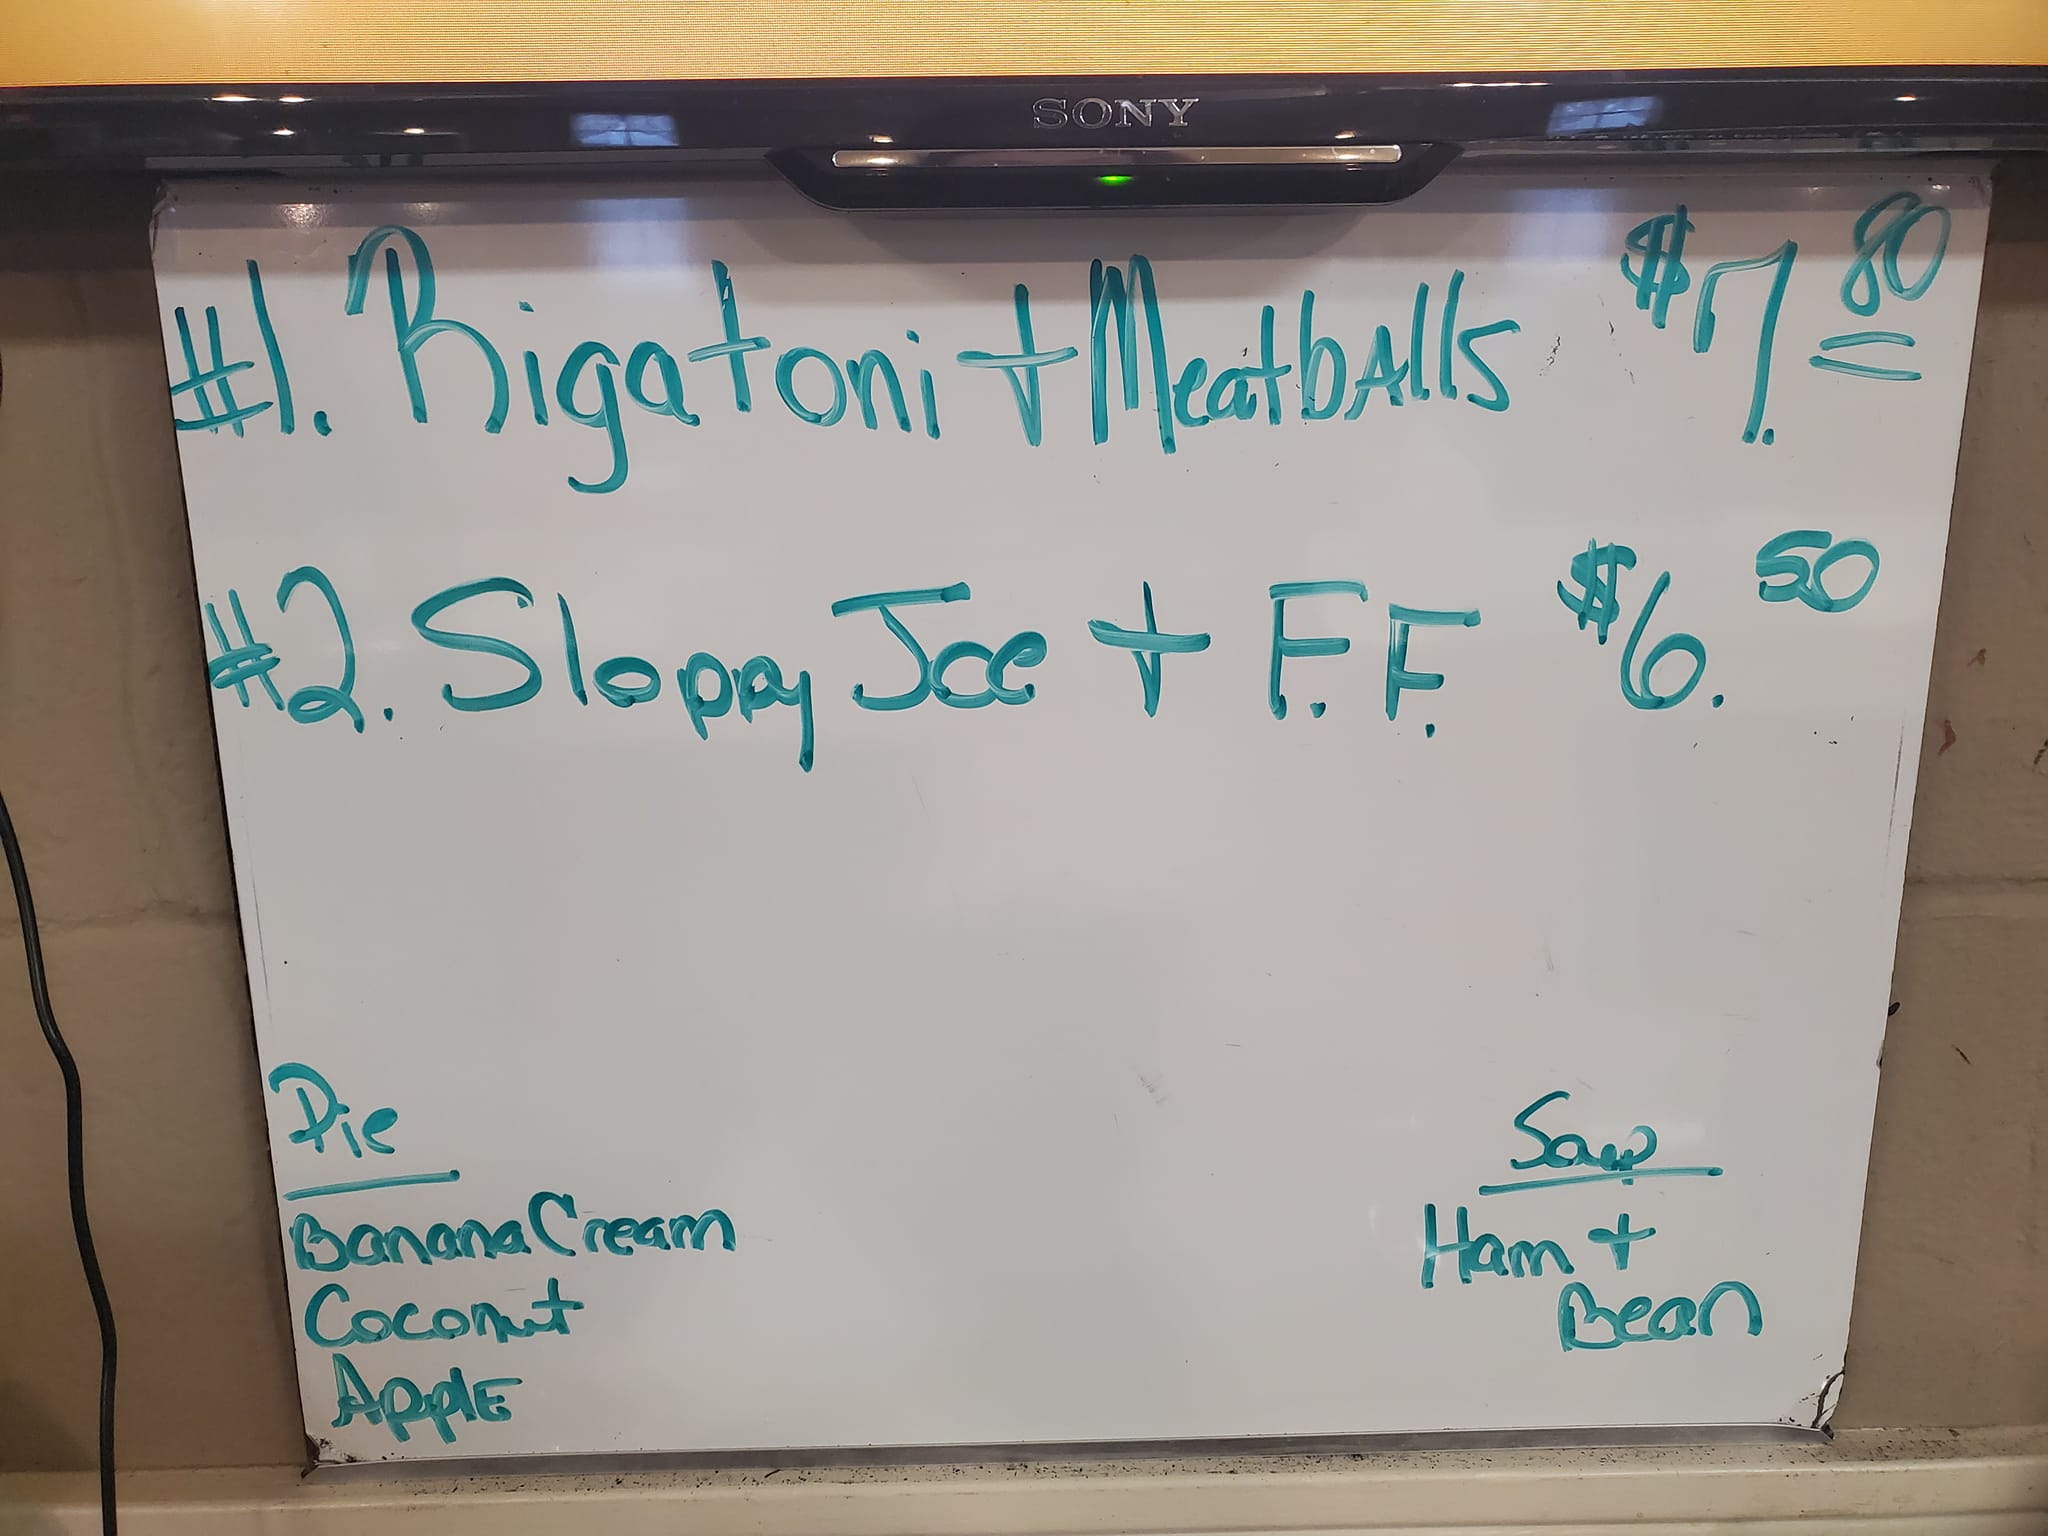 SONY
#1. Rigatoni + Meatballs $7.80
#2. Sloppy Joe + F.F. $6.50
Pie
Banana Cream
Coconut
Apple
Soup
Ham +
Bean